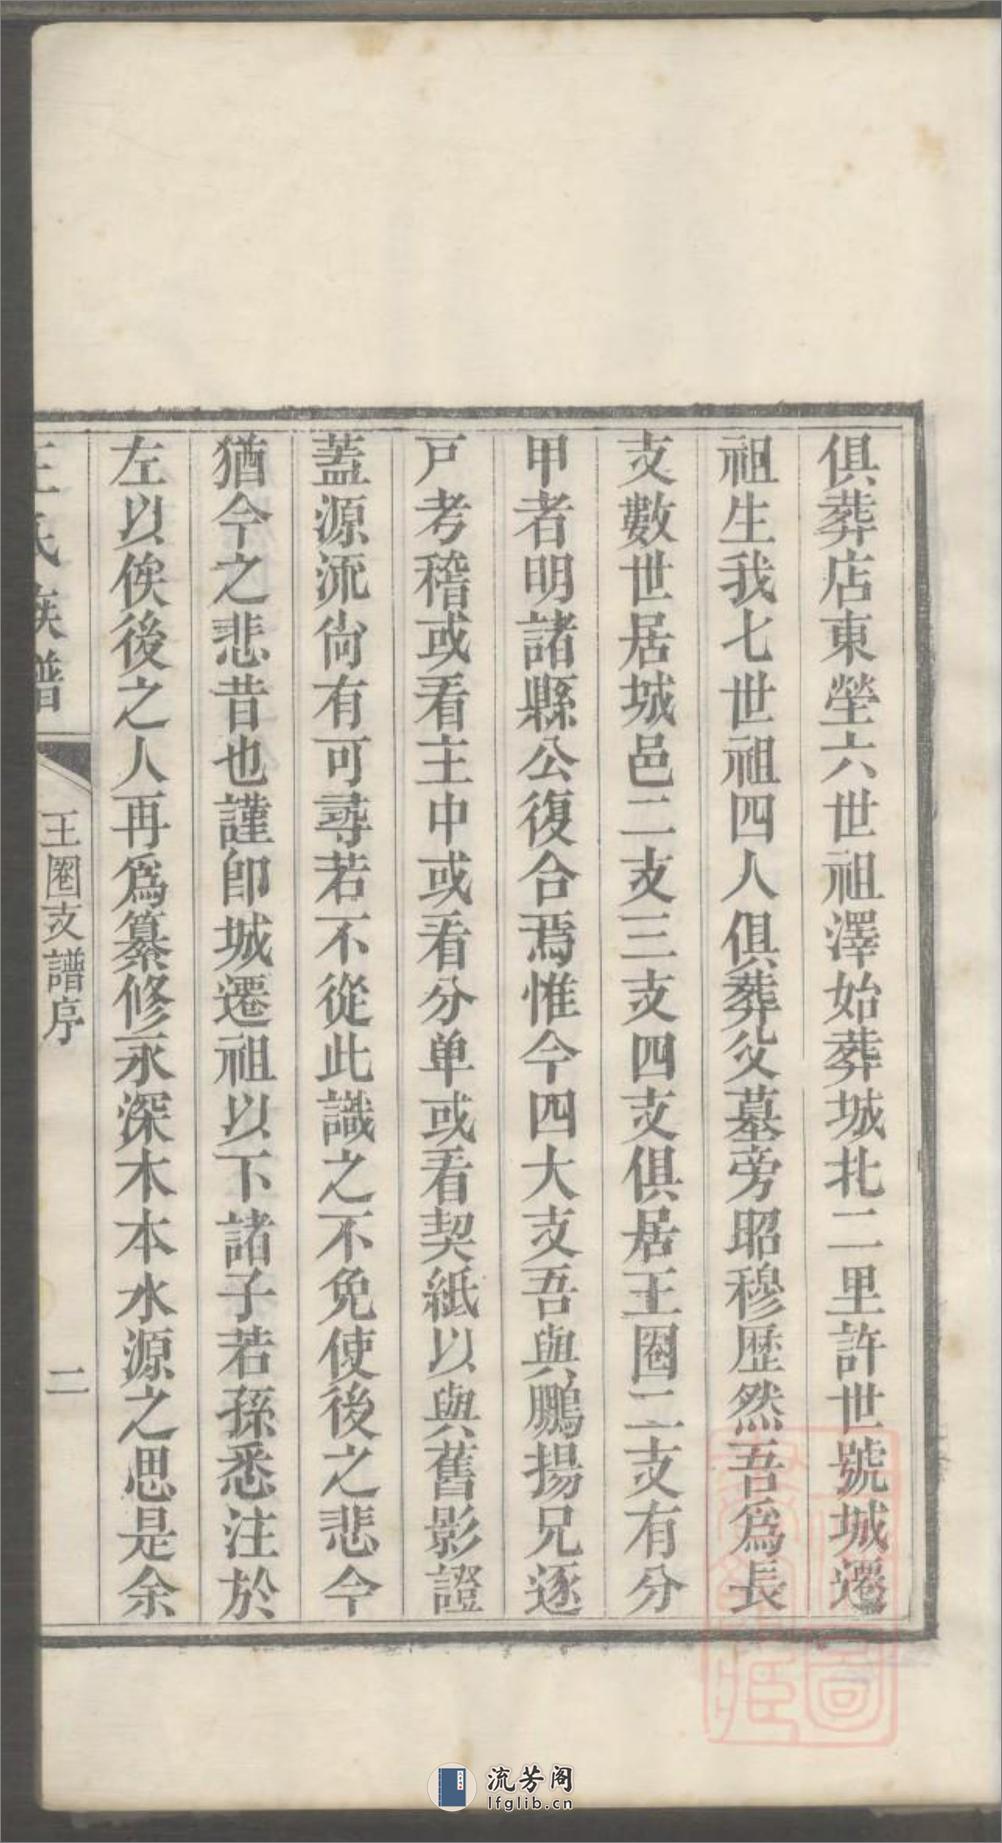 俱葬店東塋六世祖澤始葬城北二里許世號城遷
祖生我七世祖四人俱葬父墓旁昭穆歷然吾爲長
支數世居城邑二支三支四支俱居王圈二支有分
甲者明諸縣公復合焉惟今四大支吾與鵬揚兄逐
戸考稽或看主中或看分单或看契紙以與舊影證
蓋源流尙有可尋若不從此識之不免使後之悲今
猶今之悲昔也謹卽城遷祖以下諸子若孫悉注於
左以俟後之人再爲纂修永深木本水源之思是余
王氏族譜
王圈支譜序
二
流芳阁
lfglib.cn